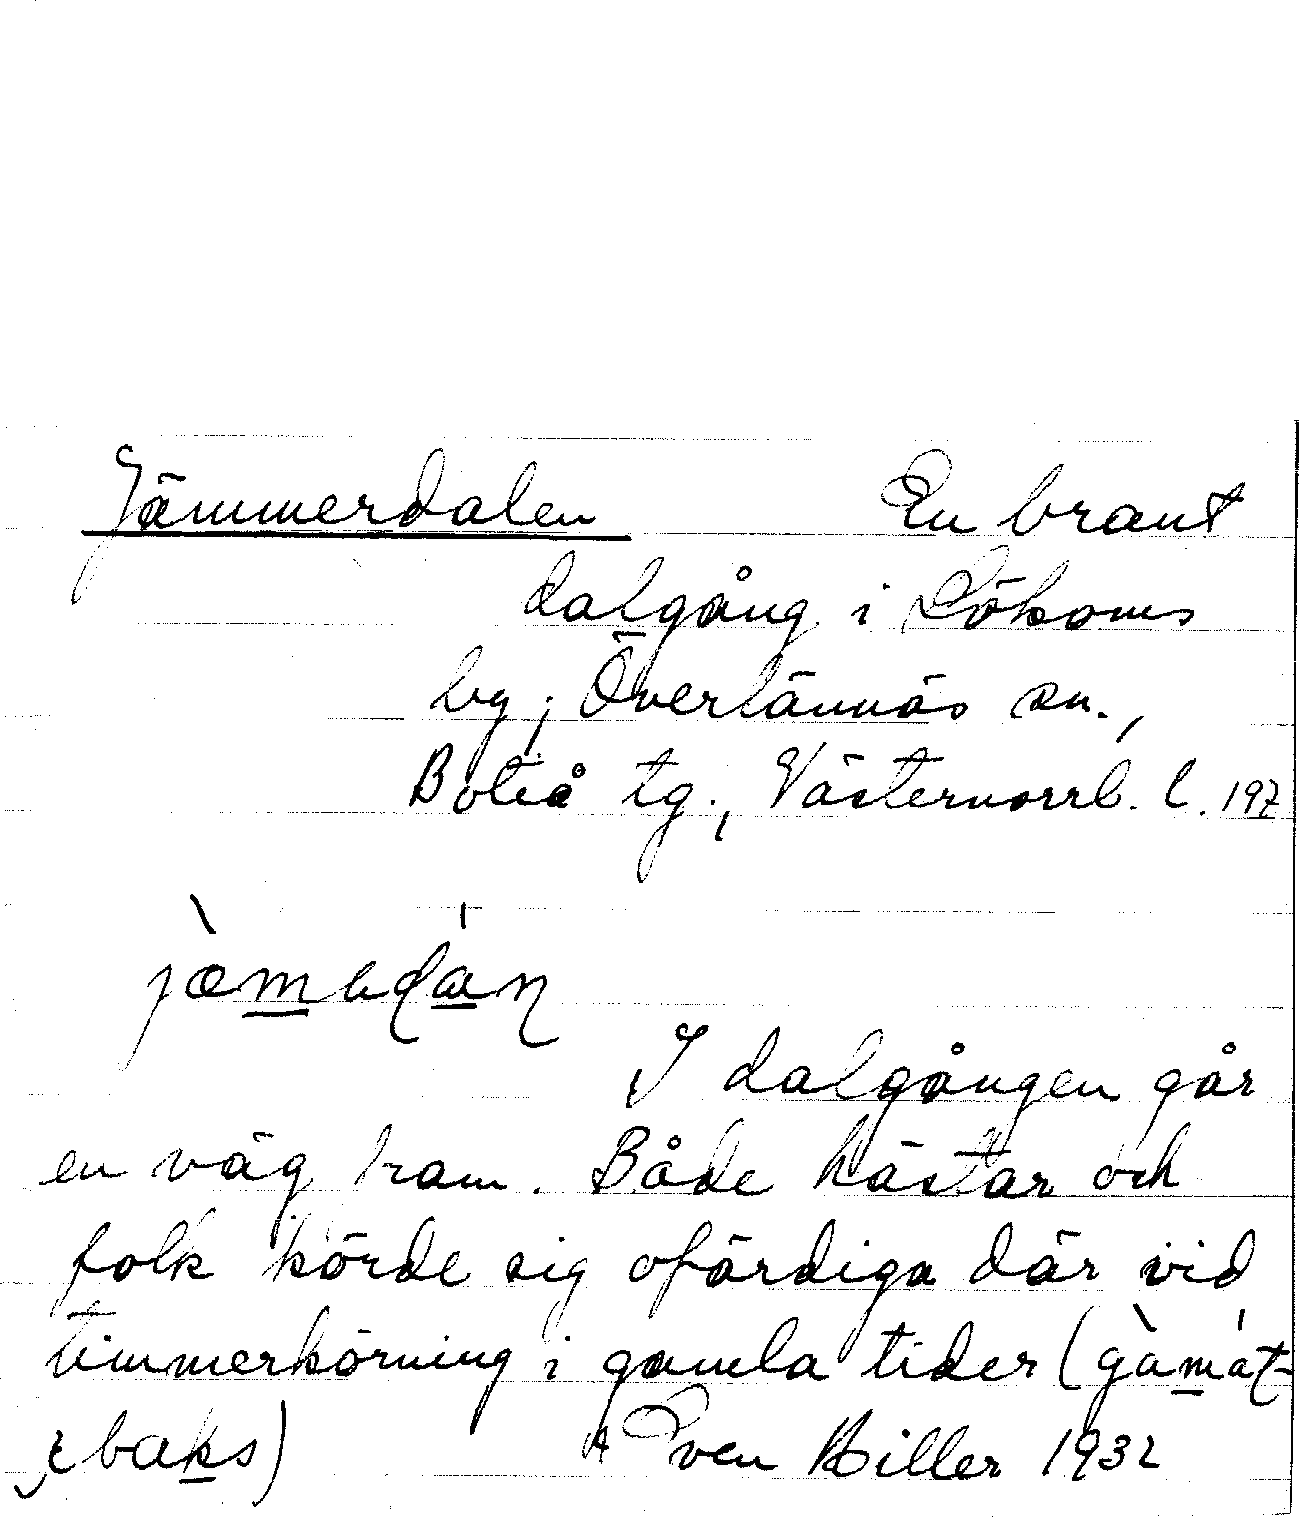 Jämmerdalen En brant
dalgång i Sökoms
by, Överlännäs sn.,
Boteå tg., Västernorrl. l. 197
I dalgången går
en väg fram. Både hästar och
folk körde sig ofärdiga där vid
timmerkörning i gamla tider (
baks) Sven Hiller 1932